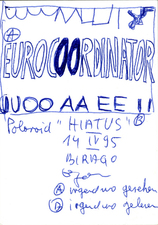 A
EUROCOORDINATOR
UUOO AA EE !!
Polaroid "HIATUS" B
14 IV 95
BIRAGO
A irgendwo gesehen
B irgendwo gelesen